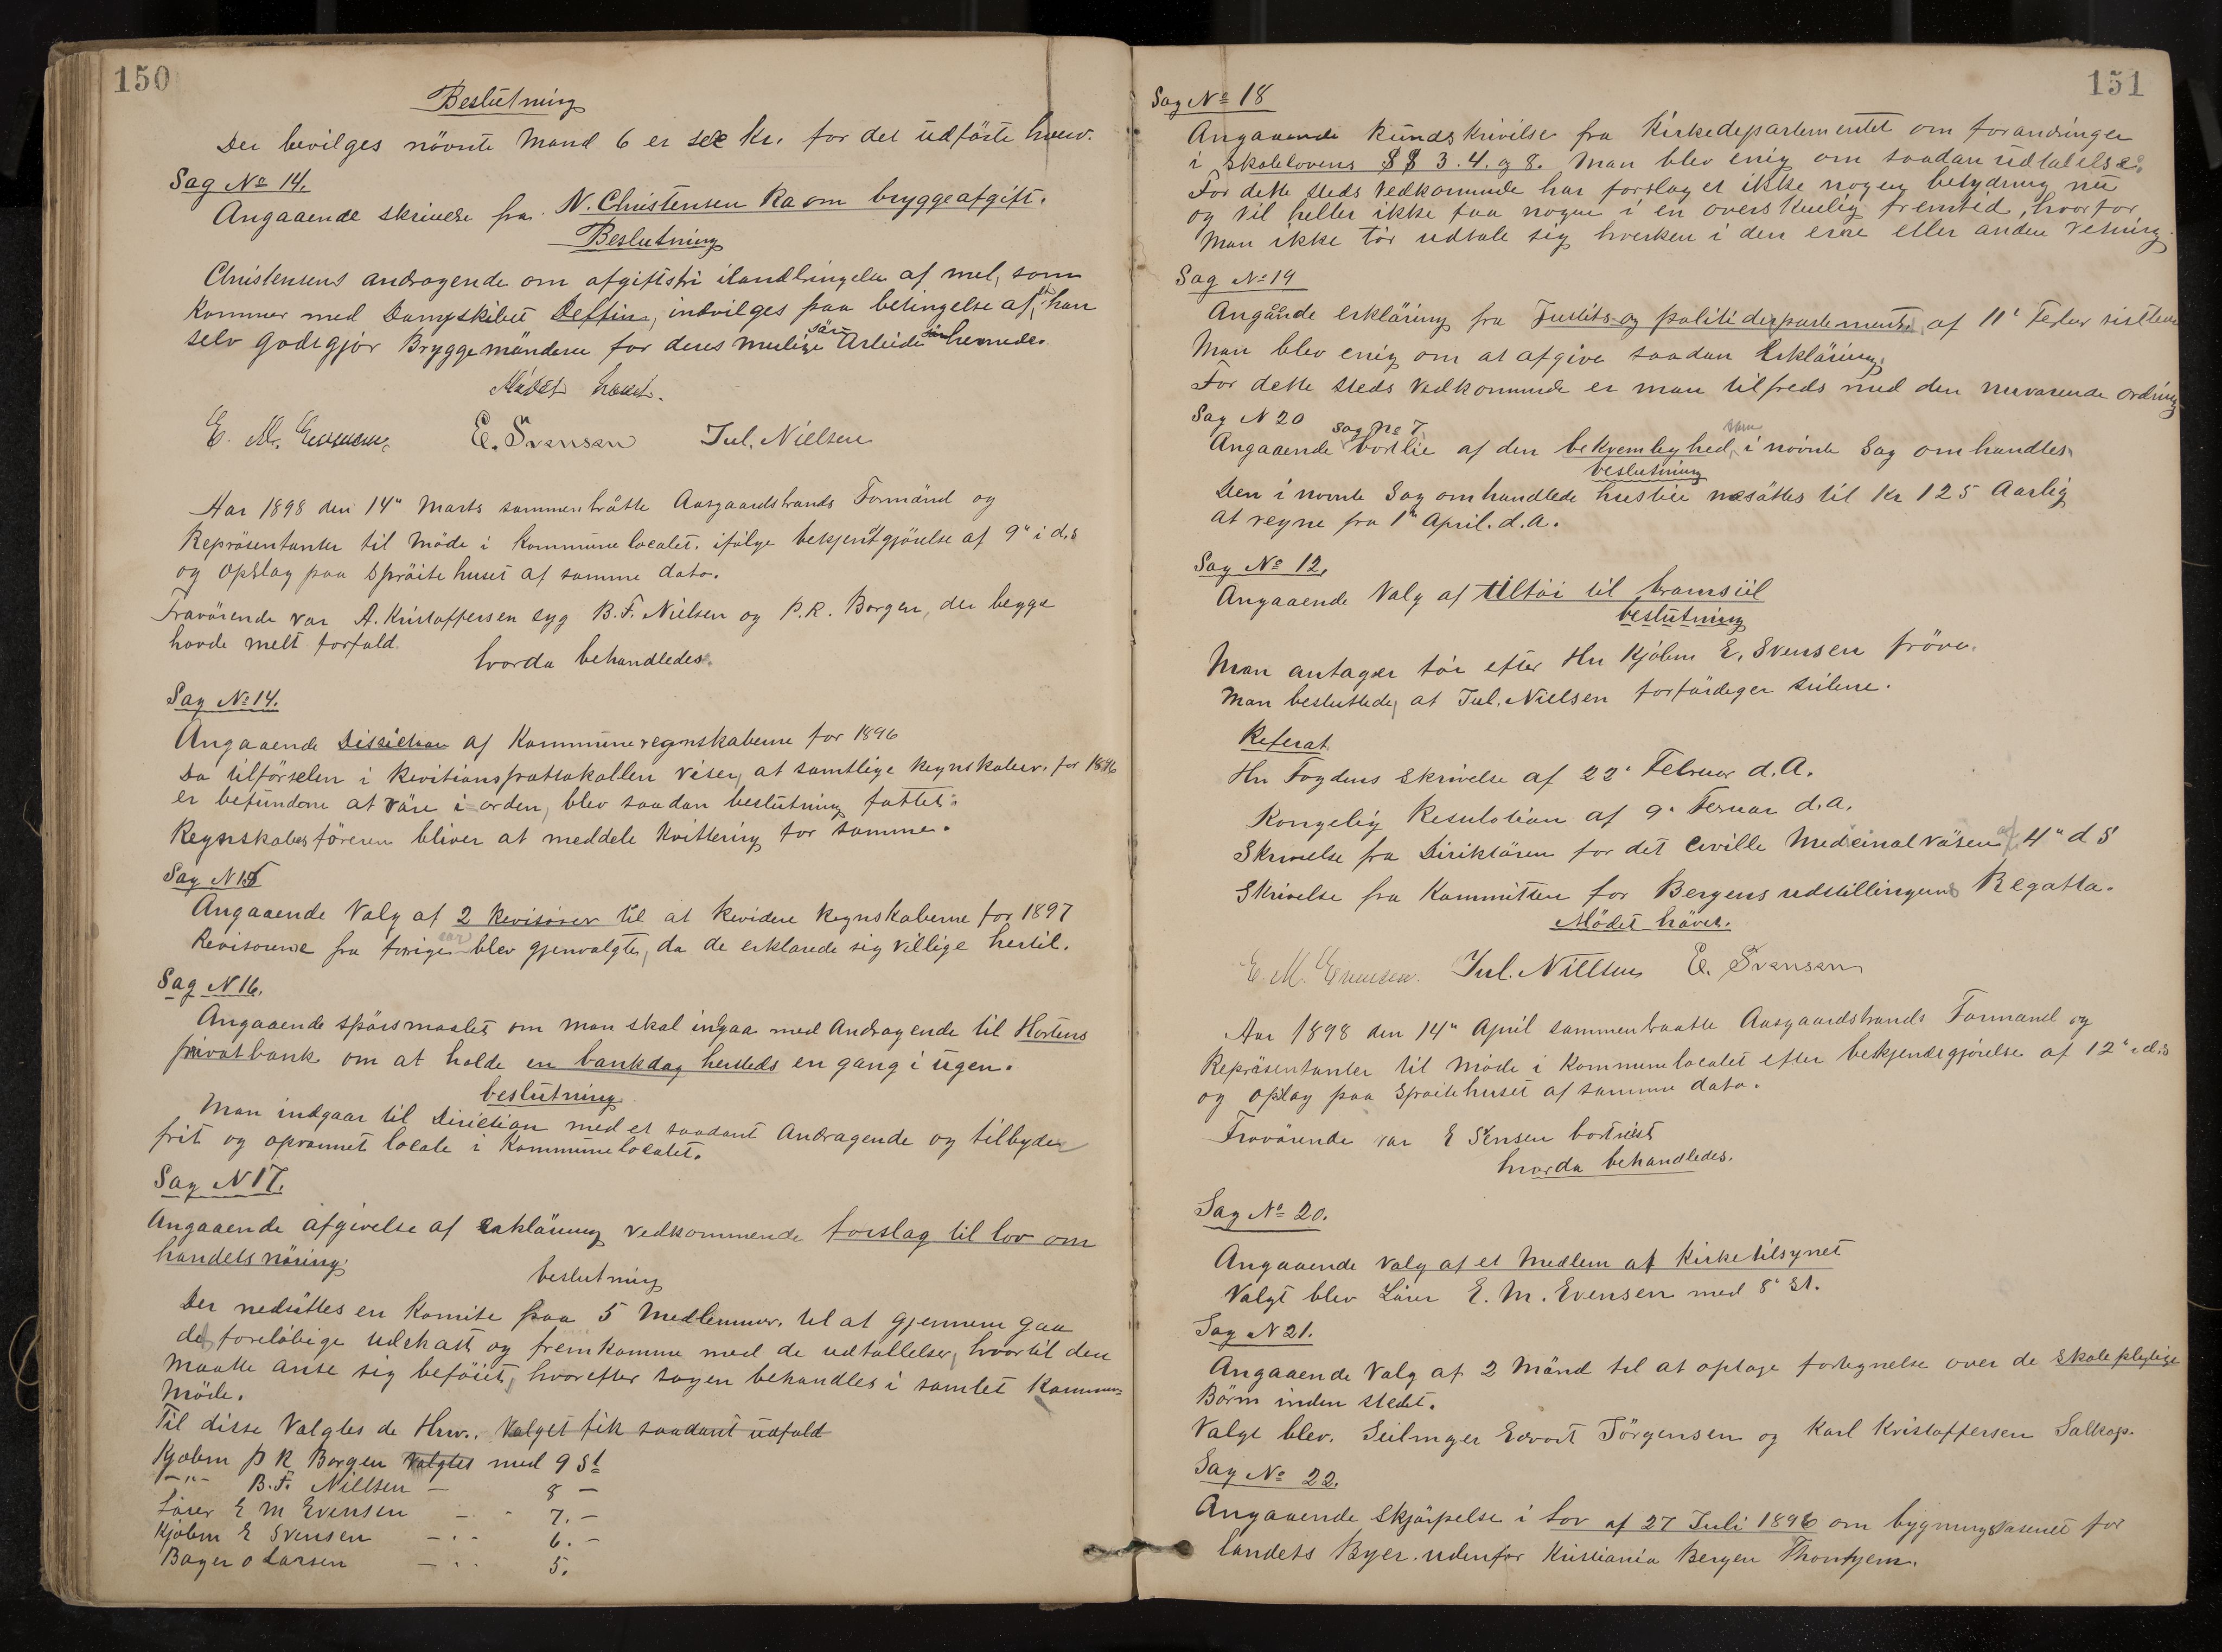 150
Beslutning
Der bevilges növnte Mand 6 er sex Kr. for det udförte hverv.
Sag No 14.
Angaaende skrivelse fra N. Christensen Ra om bryggeafgift.
Beslutning
Christensens andragende om afgiftsfri ilandbringelse af mel, som
kommer med Dampskibet Delfin, indvilges paa betingelse af, han
selv godtgjör Bryggemändene for deres mulige Arbeide hermede.
Mödet hævet.
E. M. Evensen E. Svensen Jul. Nielsen
Aar 1898 den 14" Marts sammentraatte Aasgaardstrands Formänd og
Repräsentanter til Möde i Kommunelocalet, ifölge bekjentgjörelse af 9" i d.s
og Opslag paa Spröitehuset af samme dato.
Fravärende var A. Kristoffersen syg B. F. Nielsen og P. R. Borgen, der begge
havde melt forfald.
hvorda behandledes.
Sag No 14.
Angaaende Dissicion af Kommuneregnskaberne for 1896
Da tilförselen i Revitionsprottokollen viser, at samtlige Regnskaber for 1896
er befundene at väre i orden, blev saadan beslutning fattet:
Regnskabsföreren bliver at meddele Kvittering for samme.
Sag N 15
Angaaende Valg af 2 Revisörer til at Revidere Regnskaberne for 1897
Revisorerne fra forrige aar blev gjenvalgte, da de erklarede sig villige hertil.
Sag N 16.
Angaaende spörsmaalet om man skal indgaa med Andragende til Hortens
privatbank om at holde en bankdag hersteds en gang i ugen.
beslutning
Man indgaar til Direction med et saadant Andragende og tilbyder
frit og opvarmet locale i Kommunelocalet.
Sag N 17.
Angaaende afgivelse af erklärung vedkommende forslag til lov om
handelsnäring.
beslutning
Der nedsättes en Komite paa 5 Medlemmer, til at gjennem gaa
det foreløbige udskast og fremkomme med de udtallelser, hvortil den
maatte anse sig beföiet, hvorefter sagen behandles i samlet Kommune=
Möde.
Til disse Valgtes de Hrr. Valget fik saadant udfald
Kjøbm P R Borgen Valgtes med 9 St
-"- B. F. Nielsen - 8 -
Lärer E M Evensen - - 7. -
Kjöbm E Svensen - - 6. -
Bager O Larsen - - 5.
151
Sag No 18
Angaaende Rundskrivelse fra Kirkedepartementet om forandringer
i Skolelovens §§ 3. 4. og 8. Man blev enig om saadan udtalelse:
For dette steds vedkomende har forslaget ikke nogen betydning nu
og vil heller ikke faa nogen i en overskuelig fremtid, hvorfor
Man ikke tör udtale sig hverken i den ene eller anden retning.
Sag No 19
Angående erkläring fra Justits- og politidepartementet, af 11' Febur sistleden
Man blev enig om at afgive saadan Erkläring:
For dette steds Vedkommende er man tilfreds med den nuvarende ordning
Sag N 20
Sag No 7
Angaaende bortlie af den bekvemlighed, som i növnte Sag omhandles.
beslutning
Den i növnte Sag omhandlede huslie nesättes til Kr 125 Aarlig
at regne fra 1" April. d. A.
Sag No 12.
Angaaende Valg af tiltöi til bramsiil
beslutning
Man antager töi efter Hr Kjöbm E. Svensen pröve.
Man besluttede, at Jul. Nielsen forfärdiger seilene.
Referat
Hr Fogdens Skrivelse af 22' Februar d. A.
Kongelig Resulotion af 9" Feruar d. a.
Skrivelse fra Diriktören for det Civille Medicinalväsen af 4" d S
Skrivelse fra Kommitten for Bergensudstillingens Regatta.
Mödet hävet.
E. M. Evensen. Jul. Nielsen E. Svensen
Aar 1898 den 14" April sammentraatte Aasgaardstrands Formand og
Repräsentanter til Möde i Kommunelocalet efter bekjendtgjörelse af 12" i d.s
og opslag paa Spröitehuset af samme dato.
Fravärende var E Svensen bortreist
hvorda behandledes.
Sag No 20.
Angaaende Valg af et Medlem af Kirketilsynet
Valgt blev Lärer E. M. Evensen med 8' St.
Sag N 21.
Angaaende Valg af 2 Mänd til at optage fortegnelse over de skolepligtige
Börn inden stedet.
Valgt blev. Seilmager Edvart Jörgensen og Karl Kristoffersen Saltkop.
Sag No 22.
Angaaende skjärpelse i Lov af 27 Juli 1896 om bygningsvasenet for
landets Byer udenfor Kristiania Bergen Thontjem.